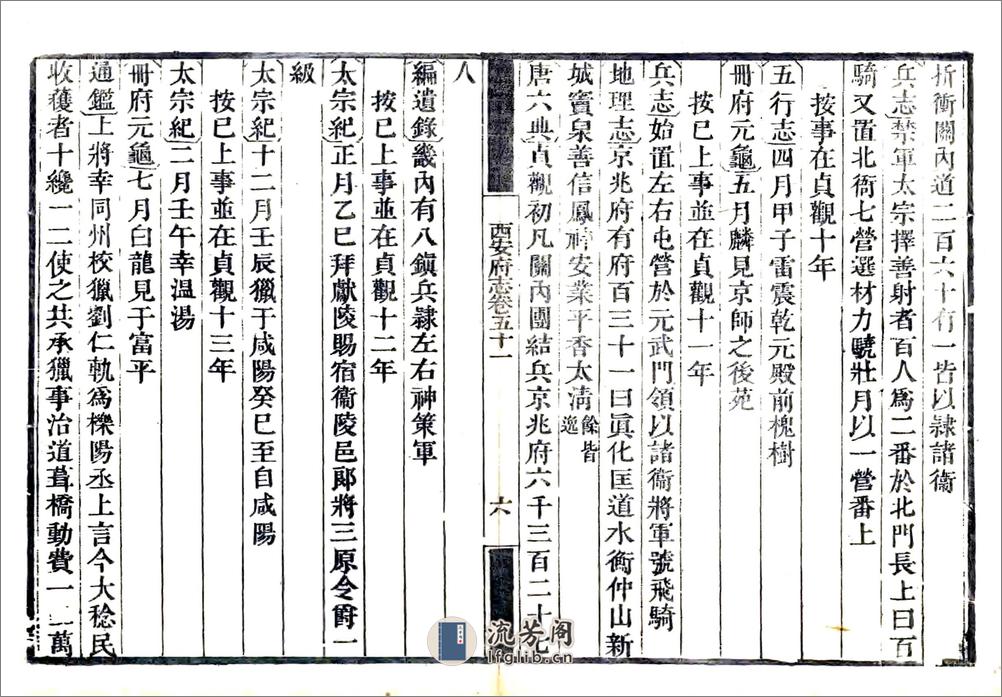 折衝關內道二百六十有一皆以隷諸衞
兵志禁軍太宗擇善射者百人爲二番於北門長上曰百
騎又置北衙七營選材力驍壯月以一營番上
按事在貞觀十年
五行志四月甲子雷震乾元殿前槐樹
冊府元龜五月麟見京師之後苑
按已上事並在貞觀十一年
兵志始置左右屯營於元武門領以諸衞將軍號飛騎
地理志京兆府有府百三十一曰眞化匡道水衡仲山新
城竇泉善信鳳神安業平香太淸餘皆逸
唐六典貞觀初凡關內團結兵京兆府六千三百二十七
西安府志卷五十一
六
人
編遺錄畿內有八鎭兵隷左右神策軍
按已上事並在貞觀十二年
太宗紀正月乙巳拜獻陵賜宿衞陵邑郞將三原令爵一
級
太宗紀十二月壬辰獵于咸陽癸巳至自咸陽
按已上事並在貞觀十三年
太宗紀二月壬午幸溫湯
冊府元龜七月白龍見于富平
通鑑上將幸同州校獵劉仁軌爲櫟陽丞上言今大稔民
收穫者十纔一二使之共承獵事治道葺橋動費一二萬
流芳阁
lfglib.cn